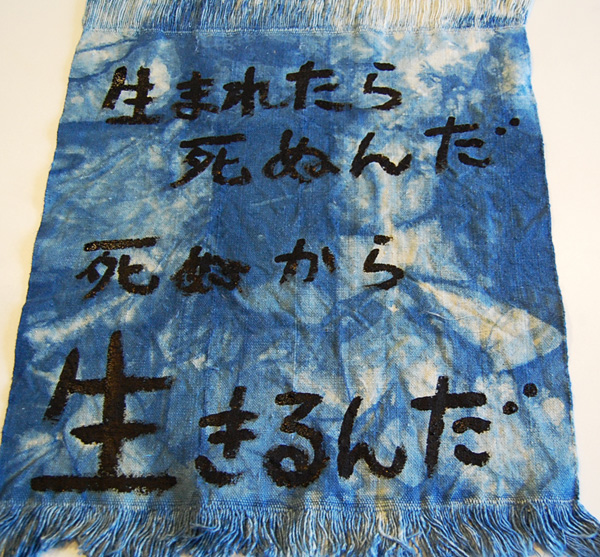 生まれたら
死ぬんだ
死ぬから
生きるんだ